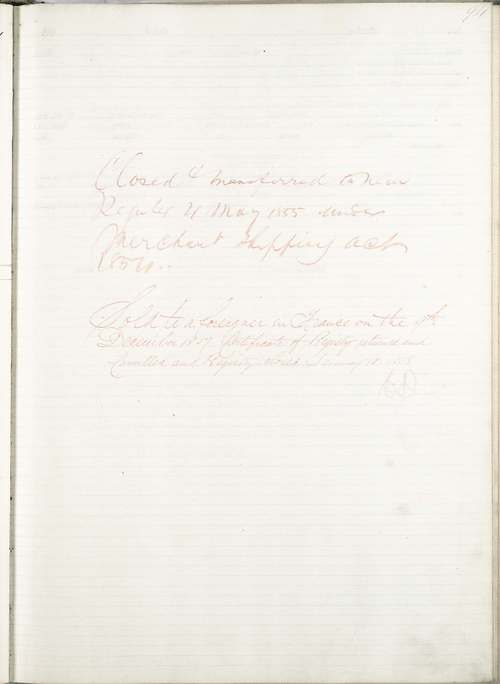 44
Closed & transferred to new
Register 21 May 1855 under
Merchant Shipping Act
1854.
Sold to a foreigner in France on the 9th
December 1857 Certificate of Registry returned and
Cancelled and Registry closed January 18 1858